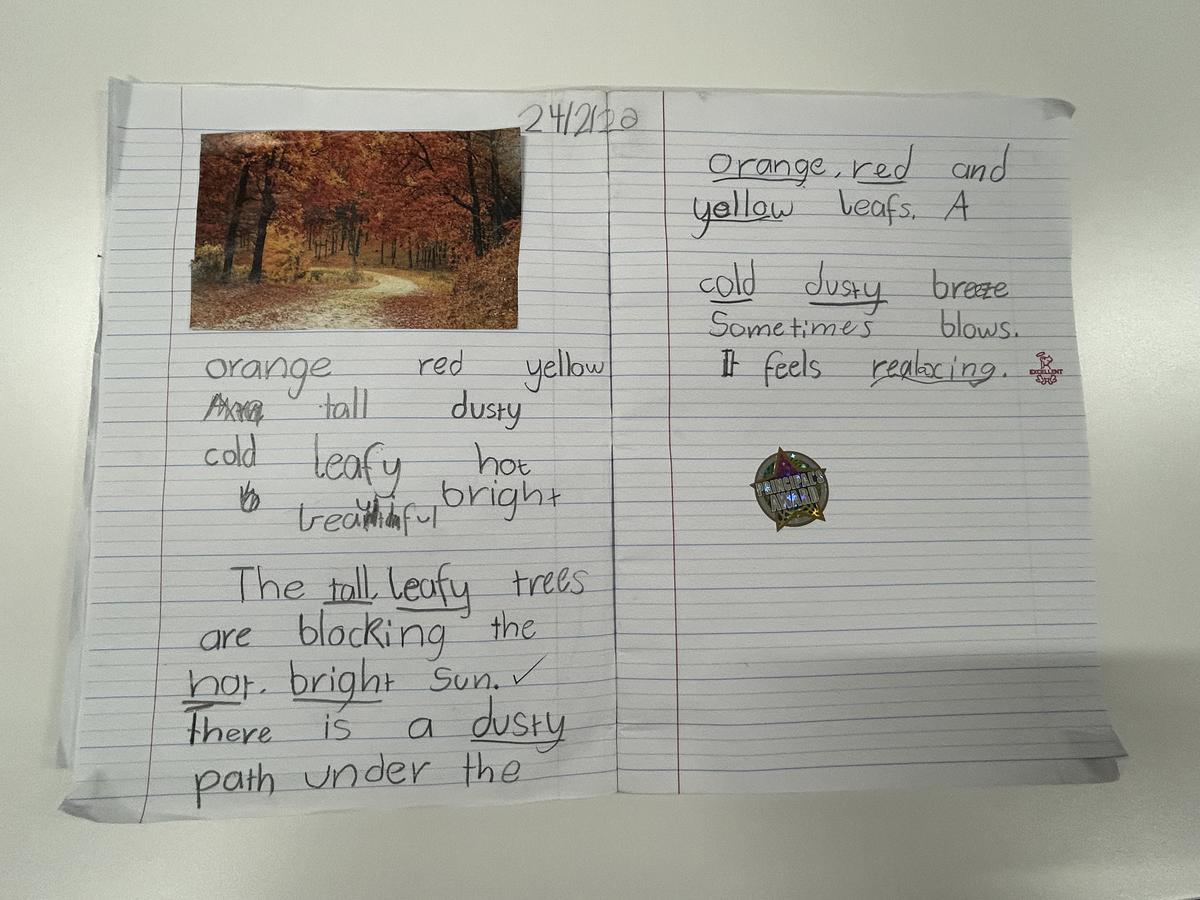 24/2/20
orange red yellow
tall dusty
cold leafy hot
bright
beautiful
The tall, leafy trees
are blocking the
hot, bright sun.
There is a dusty
path under the
orange, red and
yellow leafs. A
cold dusty breeze
Sometimes blows.
It feels realacing.
EXCELLENT
PRINCIPAL'S
AWARD